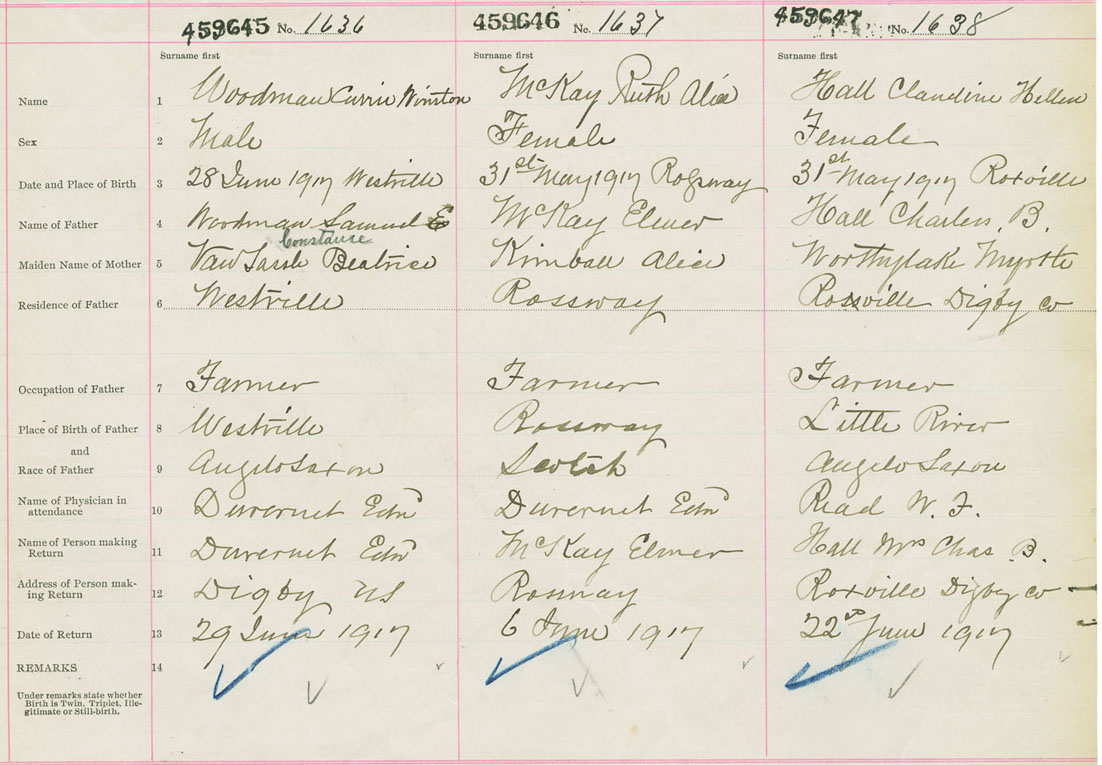 459645 No. 1636 459646 No. 1637 459647 No. 1638
Surname first Surname first Surname first
Name 1 Woodman Winston McKay Ruth Alice Hall Claudine Hellen
Sex 2 Male Female Female
Date and Place of Birth 3 28 June 1917 Westville 31st May 1917 Rossway 31st May 1917 Roxville
Name of Father 4 Woodman Samuel E McKay Elmer Hall Charles. B.
Constance
Maiden Name of Mother 5 Beatrice Kimball Alice Worthylake Myrtle
Residence of Father 6 Westville Rossway Roxville Digby co
Occupation of Father 7 Farmer Farmer Farmer
Place of Birth of Father 8 Westville Rossway Little River
and
Race of Father 9 Angelo Saxon Scotch Angelo Saxon
Name of Physician in
attendance 10 Duvernet Edw Duvernet Edw Read W. F.
Name of Person making
Return 11 Duvernet Edw McKay Elmer Hall Mrs Chas B.
Address of Person mak-
ing Return 12 Digby NS Rossway Roxville Digby co
Date of Return 13 29 June 1917 6 June 1917 22nd June 1917
REMARKS 14
Under remarks state whether
Birth is Twin, Triplet, Ille-
gitimate or Still-birth.